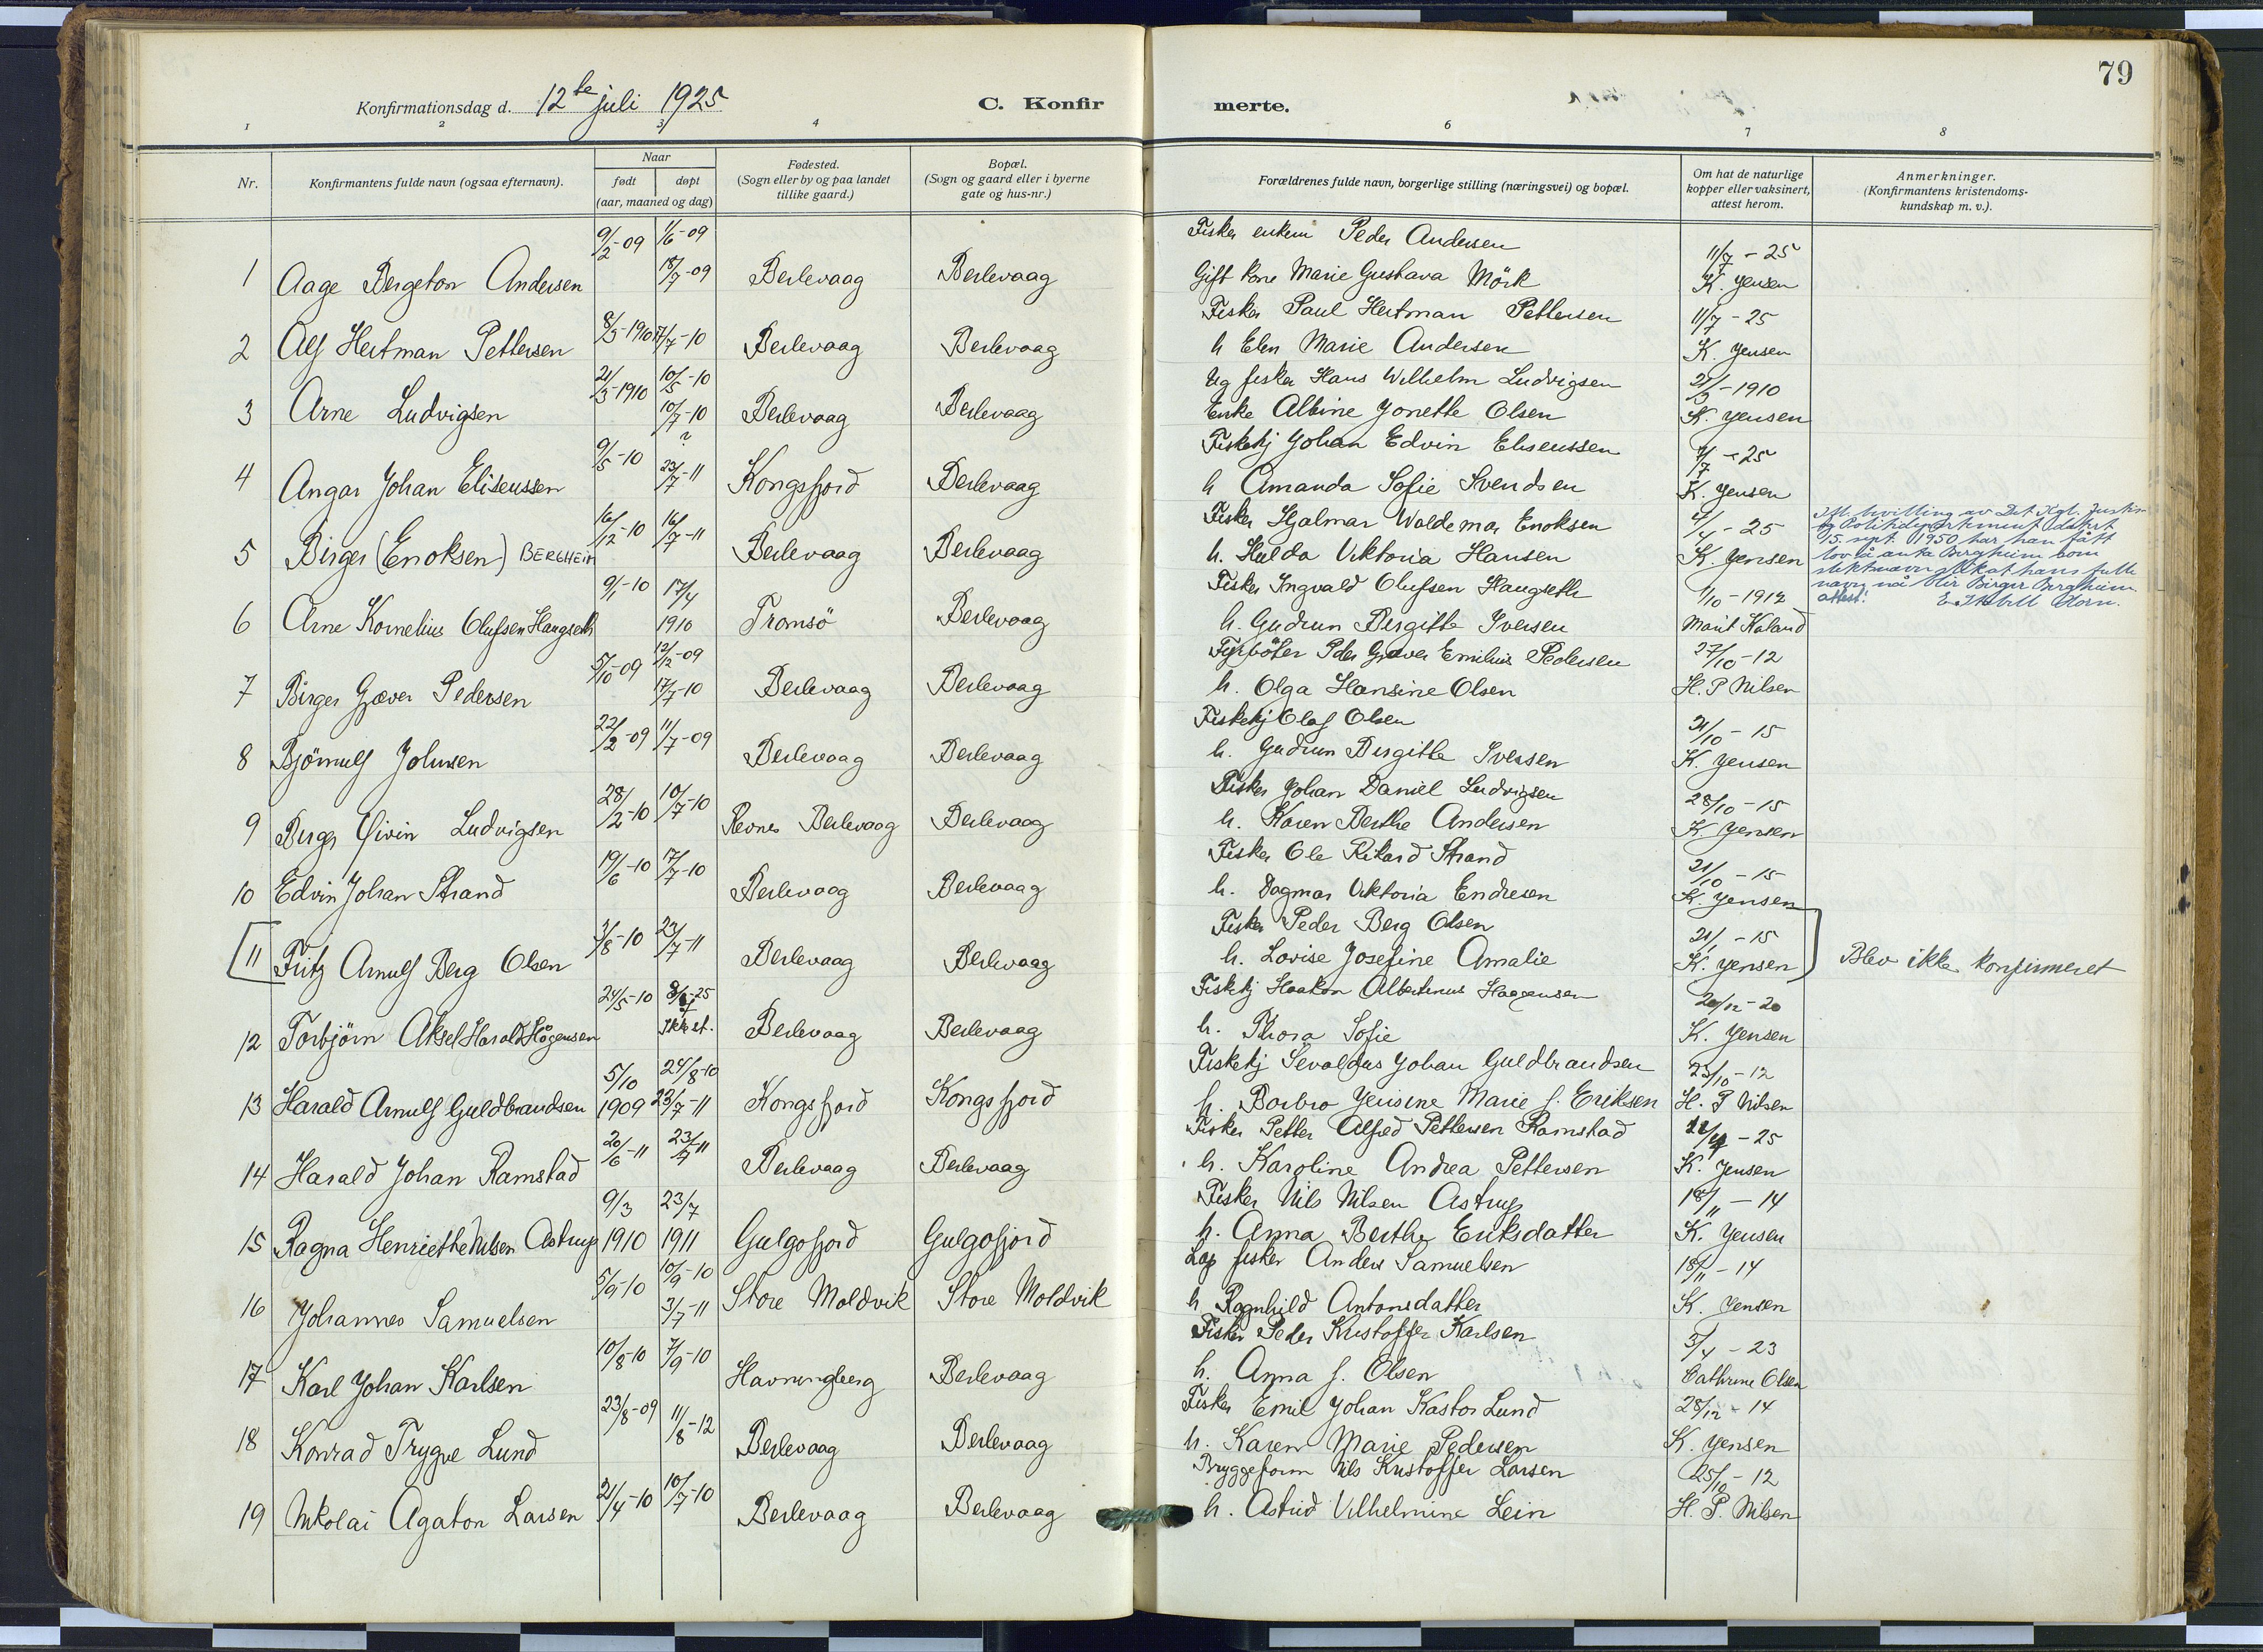 79
Konfirmationsdag d. 12te juli 1925
C. Konfir merte.
1 2 3 4 6 7 8
Nr.
Konfirmantens fulde navn (ogsaa efternavn).
Naar
født døpt
(aar, maaned og dag)
Fødested.
(Sogn eller by og paa landet
tillike gaard.)
Bopæl.
(Sogn og gaard eller i byerne
gate og hus-nr.)
Forældrenes fulde navn, borgerlige stilling (næringsvei) og bopæl.
Om hat de naturlige
kopper eller vaksinert,
attest herom.
Anmerkninger.
(Konfirmantens kristendoms-
kundskap m. v.).
9/2-09 1/6-09 Fisker Peder Andersen 11/7 - 25
1 Aage Bergeton Andersen 18/7-09 Berlevaag Berlevaag Gift kone Marie Gustava Mörk K. Jensen
8/3-1910 17/7-10 Fisker Paul Hertman Pettersen 11/7 - 25
2 Alf Hertman Pettersen Berlevaag Berlevaag h Elen Marie Andersen K. Jensen
21/3-1910 10/5-10 Ug fisker Hans Wilhelm Ludvigsen 21/3-1910
3 Arne Ludvigsen 10/7-10 Berlevaag Berlevaag Enke Albine Jonette Olsen K. Jensen
9/5-10 ? Fiskekj Johan Edvin Eliseussen /7 - 25
4 Angar Johan Eliseussen 23/7-11 Kongsfjord Berlevaag h Amanda Sofie Svendsen K. Jensen
16/12-10 16/7-11 Fisker Hjalmar Waldemar Enoksen /4 - 25
5 Birger (Enoksen) BERGHEIM Berlevaag Berlevaag h. Hulda Viktoria Hansen K. Jensen
Ifl. bevilling av Det Kgl. Justis
og Politidepartement datert
15. sept. 1950 har han fått
lov å anta Bergheim som
slektsnavn slik at hans fulle
navn nå blir Birger Bergheim.
attest:
9/1-10 17/4 Fisker Ingvald Olufsen Haugseth 1/10-1912
6 Arne Kornelius Olufsen Haugseth 1910 Tromsö Berlevaag h. Gudrun Birgitte Iversen Marit Kaland
5/10-09 12/12-09 Fyrböter Peder Gjæver Emilius Pedersen 27/10-12
7 Birger Gjæver Pedersen 17/7-10 Berlevaag Berlevaag h. Olga Hansine Olsen H. P Nilsen
22/2-09 11/7-09 Fiskekj Olaf Olsen 21/10 - 15
8 Björnulf Johnsen Berlevaag Berlevaag h. Gudrun Birgitte Iversen K. Jensen
28/2-10 10/7-10 Fisker Johan Daniel Ludvigsen 28/10 - 15
9 Birger Öivin Ludvigsen Revnes Berlevaag Berlevaag h. Karen Berthe Andersen K. Jensen
19/6-10 17/7-10 Fisker Ole Rikard Strand 21/10 - 15
10 Edvin Johan Strand Berlevaag Berlevaag h. Dagmar Viktoria Endresen K. Jensen
3/8-10 23/7-11 Fisker Peder Berg Olsen 21/1 - 15
11 Fritz Arnulf Berg Olsen Berlevaag Berlevaag h. Lovise Josefine Amalie K. Jensen Blev ikke konfirmeret
24/5-10 Fiskekj Haakon Albertinus Haagensen 20/12-20
12 Torbjörn Aksel Harald Hågensen Berlevaag Berlevaag h. Thora Sofie K. Jensen
5/10 24/8-10 Fiskekj Sevaldus Johan Guldbrandsen 23/10-12
13 Harald Arnulf Guldbrandsen 1909 23/7-11 Kongsfjord Kongsfjord h. Borbro Jensine Marie f. Eriksen H. P Nilsen
20/6-11 23/7-11 Fisker Petter Alfred Pettersen Ramstad - 25
14 Harald Johan Ramstad Berlevaag Berlevaag h. Karoline Andrea Pettersen K. Jensen
9/3 23/7 Fisker Nils Nilsen Astrup 18/11 - 14
15 Ragna Henriette Nilsen Astrup 1910 1911 Gulgofjord Gulgofjord h. Anna Berthe Eriksdatter K. Jensen
5/9-10 10/9-10 Lap fisker Anders Samuelsen 18/11 - 14
16 Johannes Samuelsen 3/7-11 Store Moldvik Store Moldvik h Ragnhild Antonsdatter K. Jensen
10/8-10 7/9-10 Fisker Peder Kristoffer Karlsen 5/4 - 23
17 Karl Johan Karlsen Havningberg Berlevaag h. Anna f. Olsen Cathrine Olsen
23/8-09 11/8-12 Fisker Emil Johan Kastor Lund 28/12 - 14
18 Konrad Trygve Lund Berlevaag Berlevaag h. Karen Marie Pedersen K. Jensen
21/4-10 10/7-10 Bryggeform Nils Kristoffer Larsen 25/10 - 12
19 Nikolai Agaton Larsen Berlevaag Berlevaag h. Astrid Vilhelmine Lein H. P. Nilsen